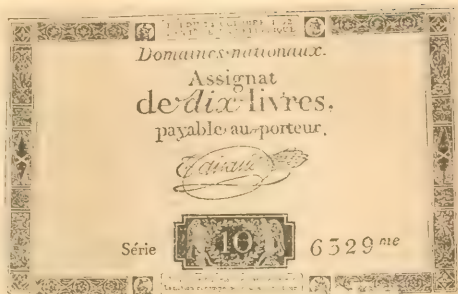 Domaines nationaux.
Assignat
de dix livres,
payable au porteur.
Série 10 6329me